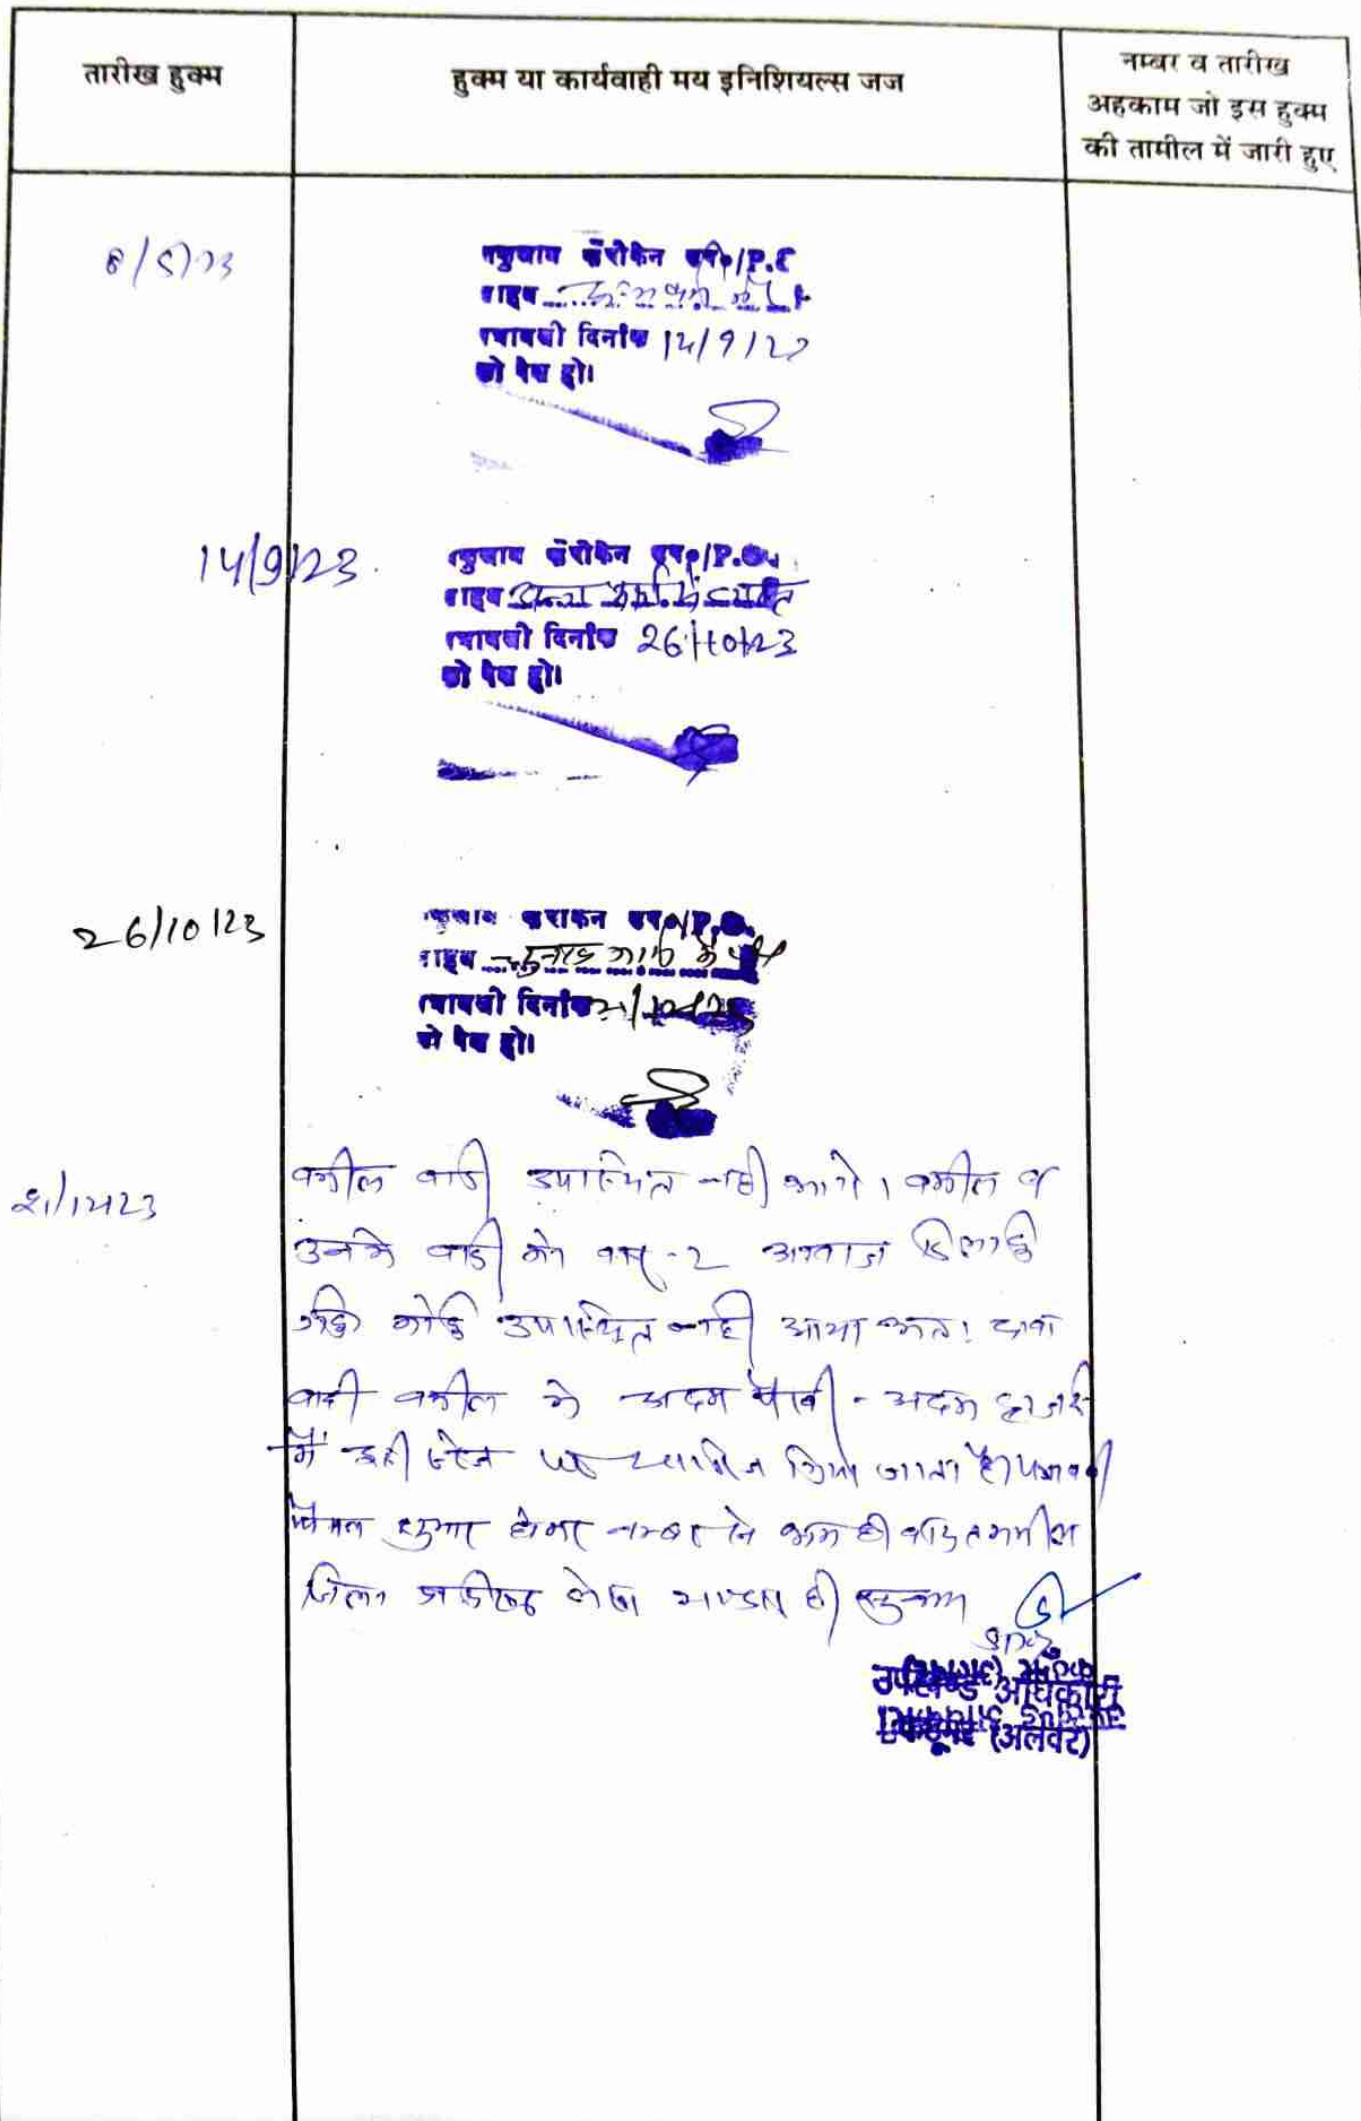 तारीख हुक्म
हुक्म या कार्यवाही मय इनिशियल्स जज
नम्बर व तारीख
अहकाम जो इस हुक्म
की तामील में जारी हुए
8/5/23
P.O.
दिनांक 14/9/23
को पेश हो।
14/9/23
P.O.
अन्य कार्य में व्यस्त
दिनांक 26/10/23
को पेश हो।
26/10/23
P.O.
चुनाव कार्य में
दिनांक
को पेश हो।
21/12/23
वकील वादी उपस्थित नही आये। वकील व
उनके वादी को बार-2 आवाज दिलाई
गई कोई उपस्थित नही आया अतः दावा
वादी वकील के अदम पैरवी - अदम हाजरी
में इसी स्टेज पर खारिज किया जाता है। पत्रावली
फैसल शुमार होकर नम्बर से कम हो बाद तकमील
जिला अभिलेख लेखा भण्डार हो
उपखण्ड अधिकारी
कठूमर (अलवर)